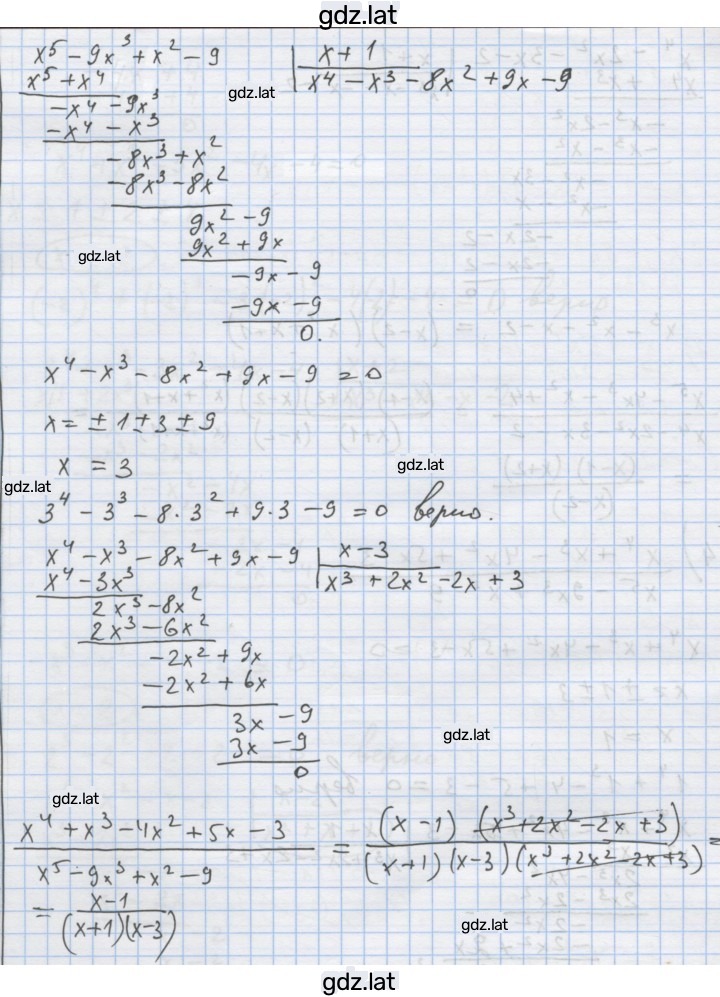 gdz.lat
x⁵ - 9x³ + x² - 9 | x + 1
x⁵ + x⁴ | x⁴ - x³ - 8x² + 9x - 9
gdz.lat
-x⁴ - 9x³
-x⁴ - x³
-8x³ + x²
-8x³ - 8x²
9x² - 9
9x² + 9x
gdz.lat
-9x - 9
-9x - 9
0.
x⁴ - x³ - 8x² + 9x - 9 = 0
x = ± 1 ± 3 ± 9
x = 3
gdz.lat
gdz.lat
3⁴ - 3³ - 8·3² + 9·3 - 9 = 0 верно.
x⁴ - x³ - 8x² + 9x - 9 | x - 3
x⁴ - 3x³ | x³ + 2x² - 2x + 3
2x³ - 8x²
2x³ - 6x²
-2x² + 9x
-2x² + 6x
3x - 9
3x - 9
gdz.lat
0
gdz.lat
x⁴ + x³ - 4x² + 5x - 3 = (x - 1) (x³ + 2x² - 2x + 3) =
x⁵ - 9x³ + x² - 9 (x + 1) (x - 3) (x³ + 2x² - 2x + 3)
= x - 1
(x + 1)(x - 3)
gdz.lat
gdz.lat